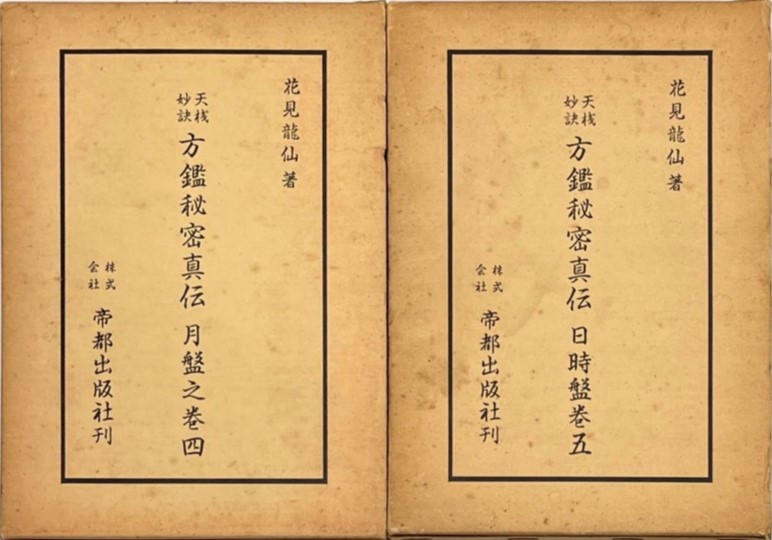 花見龍仙著
天桟妙訣 方鑑秘密真伝 月盤之巻四
株式会社 帝都出版社刊
花見龍仙著
天桟妙訣 方鑑秘密真伝 日時盤巻五
株式会社 帝都出版社刊